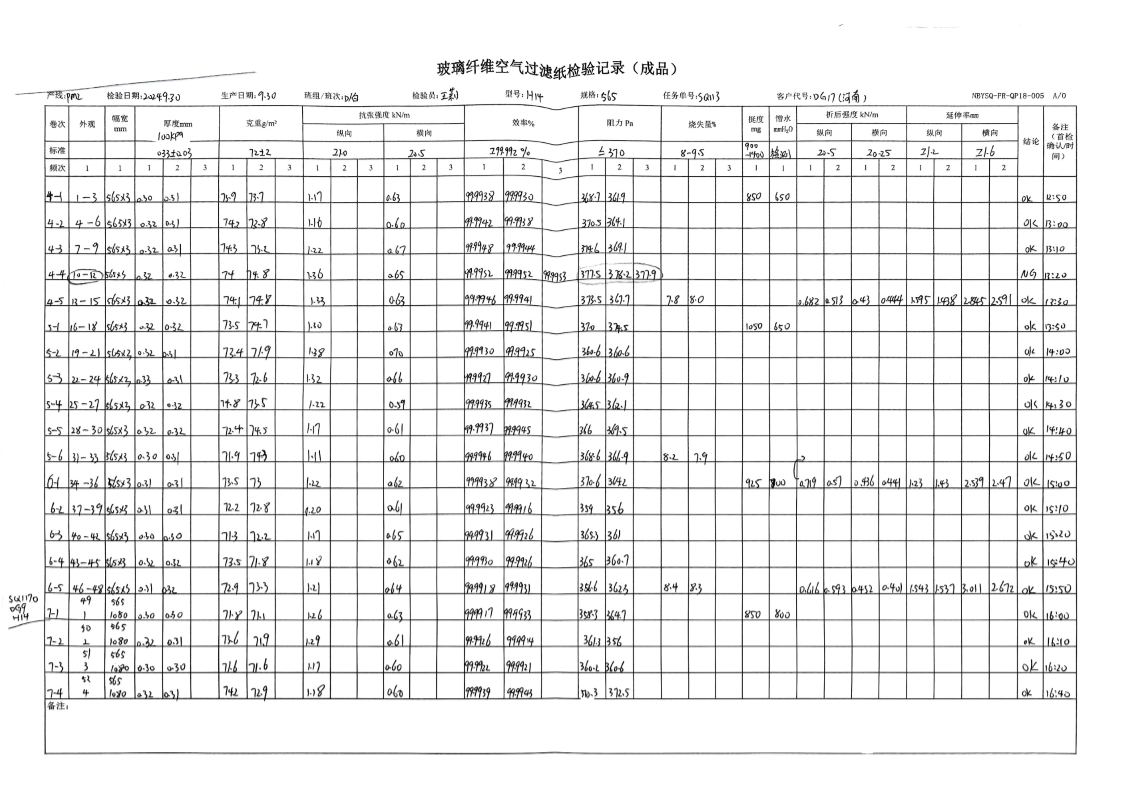 玻璃纤维空气过滤纸检验记录（成品）
产线:PM2 检验日期:2024.9.30 生产日期:9.30 班组/班次:D/白 检验员: 型号:H14 规格:565 任务单号:SQ113 客户代号:DG17(河南) NBYSQ-FR-QP18-005 A/0
卷次 外观 幅宽mm 厚度mm 100KPa 克重g/m² 抗张强度 kN/m 纵向 横向 效率% 阻力 Pa 烧失量% 挺度mg 憎水mmH₂O 折后强度 kN/m 纵向 横向 延伸率mm 纵向 横向 结论 备注（首检确认/时间）
标准 0.33±0.03 72±2 ≥1.0 ≥0.5 ≥99.992% ≤370 8-9.5 900-1400 检测 ≥0.5 ≥0.25 ≥1.2 ≥1.6
频次 1 1 1 2 3 1 2 3 1 2 3 1 2 3 1 2 3 1 2 3 1 2 3 1 1 1 2 1 2 1 2 1 2
4-1 1-3 565×3 0.30 0.31 73.9 73.7 1.17 0.63 99.9938 99.9930 368.7 361.9 850 650 ok 12:50
4-2 4-6 565×3 0.32 0.31 74.2 72.8 1.16 0.60 99.9942 99.9938 370.5 364.1 ok 13:00
4-3 7-9 565×3 0.32 0.31 74.3 73.2 1.22 0.67 99.9948 99.9944 374.6 369.1 ok 13:10
4-4 10-12 565×3 0.32 0.32 74 74.8 1.36 0.65 99.9952 99.9952 99.9953 377.5 378.2 377.9 NG 13:20
4-5 13-15 565×3 0.32 0.32 74.1 74.8 1.33 0.63 99.9946 99.9941 373.5 367.7 7.8 8.0 0.682 0.513 0.43 0.444 1.595 1.438 2.845 2.591 ok 13:30
5-1 16-18 565×3 0.32 0.32 73.5 74.7 1.30 0.63 99.9941 99.9951 370 374.5 1050 650 ok 13:50
5-2 19-21 565×3 0.32 0.31 73.4 71.9 1.38 0.70 99.9930 99.9925 360.6 360.6 ok 14:00
5-3 22-24 565×3 0.33 0.31 73.3 72.6 1.32 0.66 99.9927 99.9930 360.6 360.9 ok 14:10
5-4 25-27 565×3 0.32 0.32 74.8 73.5 1.22 0.59 99.9935 99.9932 364.5 362.1 ok 14:30
5-5 28-30 565×3 0.32 0.32 72.4 74.5 1.17 0.61 99.9937 99.9945 366 369.5 ok 14:40
5-6 31-33 565×3 0.30 0.31 71.9 74.3 1.11 0.60 99.9946 99.9940 368.6 366.9 8.2 7.9 ok 14:50
6-1 34-36 565×3 0.31 0.31 73.5 73 1.22 0.62 99.9938 99.9932 370.6 364.2 925 800 0.719 0.57 0.436 0.441 1.23 1.43 2.539 2.47 ok 15:00
6-2 37-39 565×3 0.31 0.31 72.2 72.8 1.20 0.61 99.9923 99.9916 359 356 ok 15:10
6-3 40-42 565×3 0.30 0.30 71.3 72.2 1.17 0.65 99.9931 99.9926 363.3 361 ok 15:20
6-4 43-45 565×3 0.32 0.32 73.5 71.8 1.18 0.62 99.9930 99.9926 365 360.7 ok 15:40
6-5 46-48 565×3 0.31 0.32 72.9 73.3 1.21 0.64 99.9918 99.9931 356.6 362.3 8.4 8.3 0.616 0.593 0.452 0.401 1.543 1.537 3.011 2.672 ok 15:50
SQ1170
DG9
H14
49 565
7-1 1 1080 0.30 0.30 71.8 71.1 1.26 0.63 99.9917 99.9933 358.3 364.7 850 800 ok 16:00
50 565
7-2 2 1080 0.32 0.31 73.6 71.9 1.29 0.61 99.9926 99.9914 361.3 356 ok 16:10
51 565
7-3 3 1080 0.30 0.30 71.6 71.6 1.17 0.60 99.9922 99.9921 360.2 360.6 ok 16:20
52 565
7-4 4 1080 0.32 0.31 74.2 72.9 1.18 0.60 99.9939 99.9943 370.3 372.5 ok 16:40
备注：